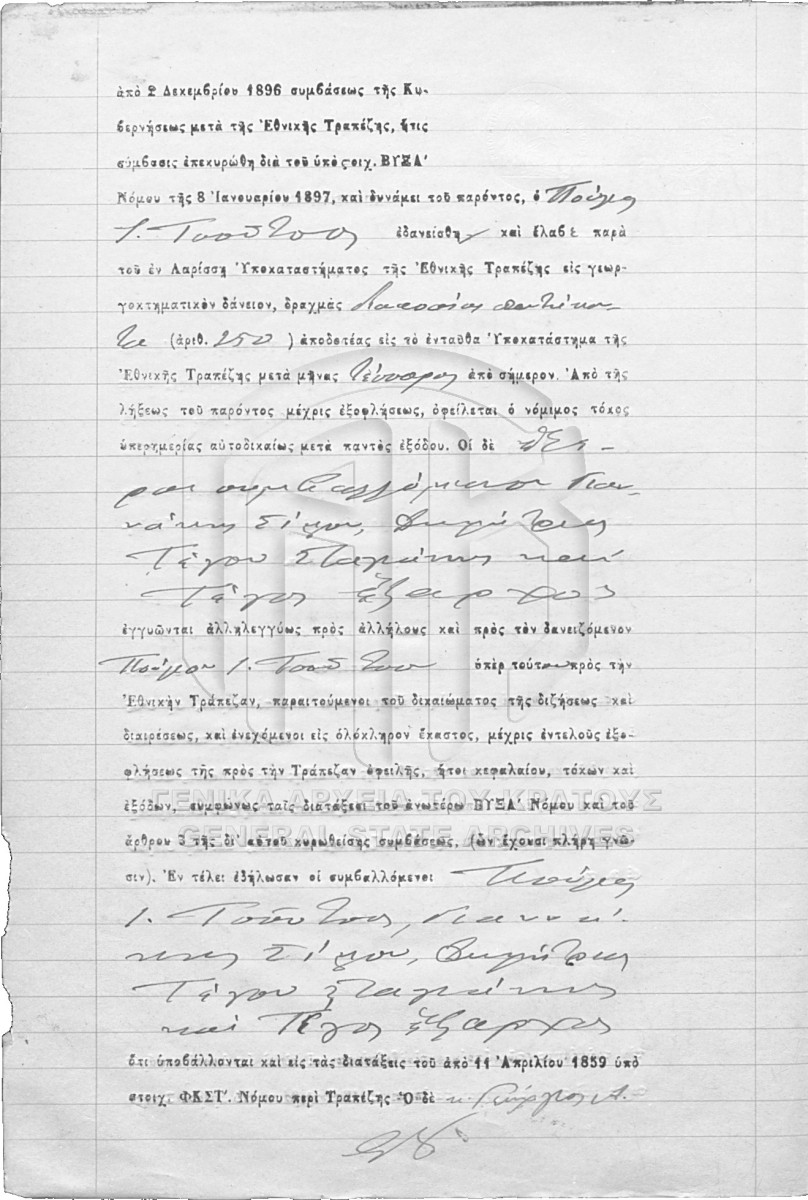 ἀπὸ 2 Δεκεμβρίου 1896 συμβάσεως τῆς Κυ-
βερνήσεως μετὰ τῆς Ἐθνικῆς Τραπέζης, ἥτις
σύμβασις ἐπεκυρώθη διὰ τοῦ ὑπὸ στοιχ. ΒΥΞΑ΄
Νόμου τῆς 8 Ἰανουαρίου 1897, καὶ δυνάμει τοῦ παρόντος, ὁ
Ι. ἐδανείσθη καὶ ἔλαβε παρὰ
τοῦ ἐν Λαρίσσῃ Ὑποκαταστήματος τῆς Ἐθνικῆς Τραπέζης εἰς γεωρ-
γοκτηματικὸν δάνειον, δραχμὰς διακοσίας πεντήκον-
τα (ἀριθ. 250) ἀποδοτέας εἰς τὸ ἐνταῦθα Ὑποκατάστημα τῆς
Ἐθνικῆς Τραπέζης μετὰ μῆνας τέσσαρας ἀπὸ σήμερον. Ἀπὸ τῆς
λήξεως τοῦ παρόντος μέχρις ἐξοφλήσεως, ὀφείλεται ὁ νόμιμος τόκος
ὑπερημερίας αὐτοδικαίως μετὰ παντὸς ἐξόδου. Οἱ δὲ ἕτε-
ροι συμβαλλόμενοι Γιαν-
νάκης Σίμου, Δημήτριος
Τέγου Σταμάκης καὶ
Τέγος Ἔξαρχος
ἐγγυῶνται ἀλληλεγγύως πρὸς ἀλλήλους καὶ πρὸς τὸν δανειζόμενον
Ι. ὑπὲρ τούτου πρὸς τὴν
Ἐθνικὴν Τράπεζαν, παραιτούμενοι τοῦ δικαιώματος τῆς διζήσεως καὶ
διαιρέσεως, καὶ ἐνεχόμενοι εἰς ὁλόκληρον ἕκαστος, μέχρις ἐντελοῦς ἐξο-
φλήσεως τῆς πρὸς τὴν Τράπεζαν ὀφειλῆς, ἤτοι κεφαλαίου, τόκων καὶ
ΓΕΝΙΚΑ ΑΡΧΕΙΑ ΤΟΥ ΚΡΑΤΟΥΣ
ἐξόδων, συμφώνως ταῖς διατάξεσι τοῦ ἀνωτέρω ΒΥΞΑ΄ Νόμου καὶ τοῦ
GENERAL STATE ARCHIVES
ἄρθρου 3 τῆς δι' αὐτοῦ κυρωθείσης συμβάσεως, (ὧν ἔχουσι πλήρη γνῶ-
σιν). Ἐν τέλει ἐδήλωσαν οἱ συμβαλλόμενοι
Ι. Γιαννά-
κης Σίμου, Δημήτριος
Τέγου Σταμάκης
καὶ Τέγος Ἔξαρχος
ὅτι ὑποβάλλονται καὶ εἰς τὰς διατάξεις τοῦ ἀπὸ 11 Ἀπριλίου 1859 ὑπὸ
στοιχ. ΦΚΣΤ΄. Νόμου περὶ Τραπέζης Ὁ δὲ κ. Γεώργιος Α.